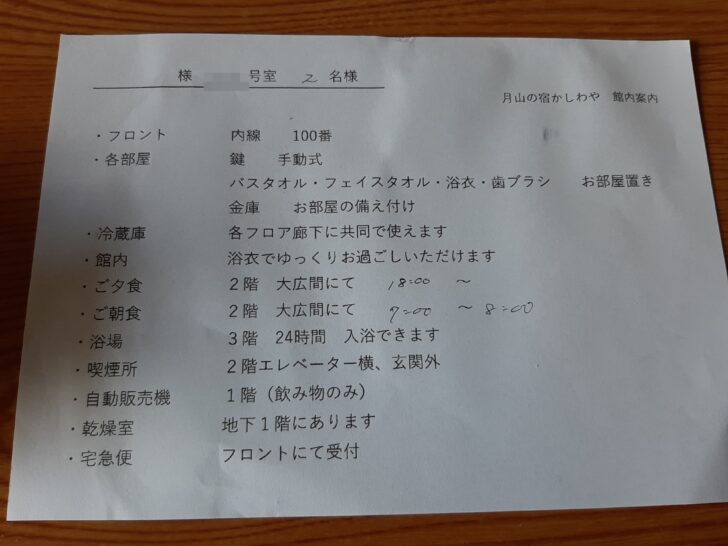 様 号室 2 名様
月山の宿かしわや 館内案内
・フロント 内線 100番
・各部屋 鍵 手動式
バスタオル・フェイスタオル・浴衣・歯ブラシ お部屋置き
金庫 お部屋の備え付け
・冷蔵庫 各フロア廊下に共同で使えます
・館内 浴衣でゆっくりお過ごしいただけます
・ご夕食 2階 大広間にて 18:00 ～
・ご朝食 2階 大広間にて 7:00 ～ 8:00
・浴場 3階 24時間 入浴できます
・喫煙所 2階エレベーター横、玄関外
・自動販売機 1階(飲み物のみ)
・乾燥室 地下1階にあります
・宅急便 フロントにて受付